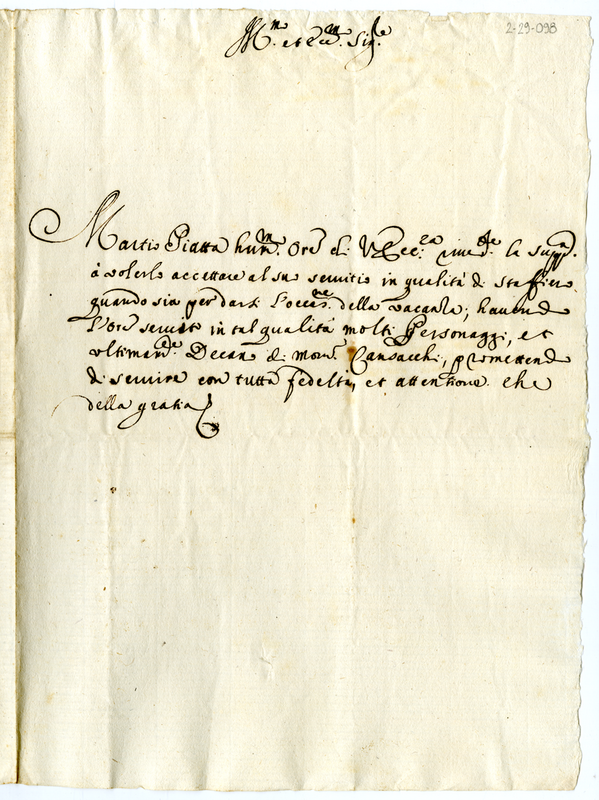 2-29-098
Ill.mo et Ecc.mo Sig.re
Martio Piatta hum.mo Ore di V. Ecc.za la supp.a
à volerlo accettare al suo servitio in qualità di staffiero
quando sia per darsi l'occas.ne della vacanza; havendo
l'Ore servito in tal qualità molti Personaggi, et
ultimam.te Decano di Mons.r Cansacchi, promettendo
di servire con tutta fedeltà, et attentione che
della gratia